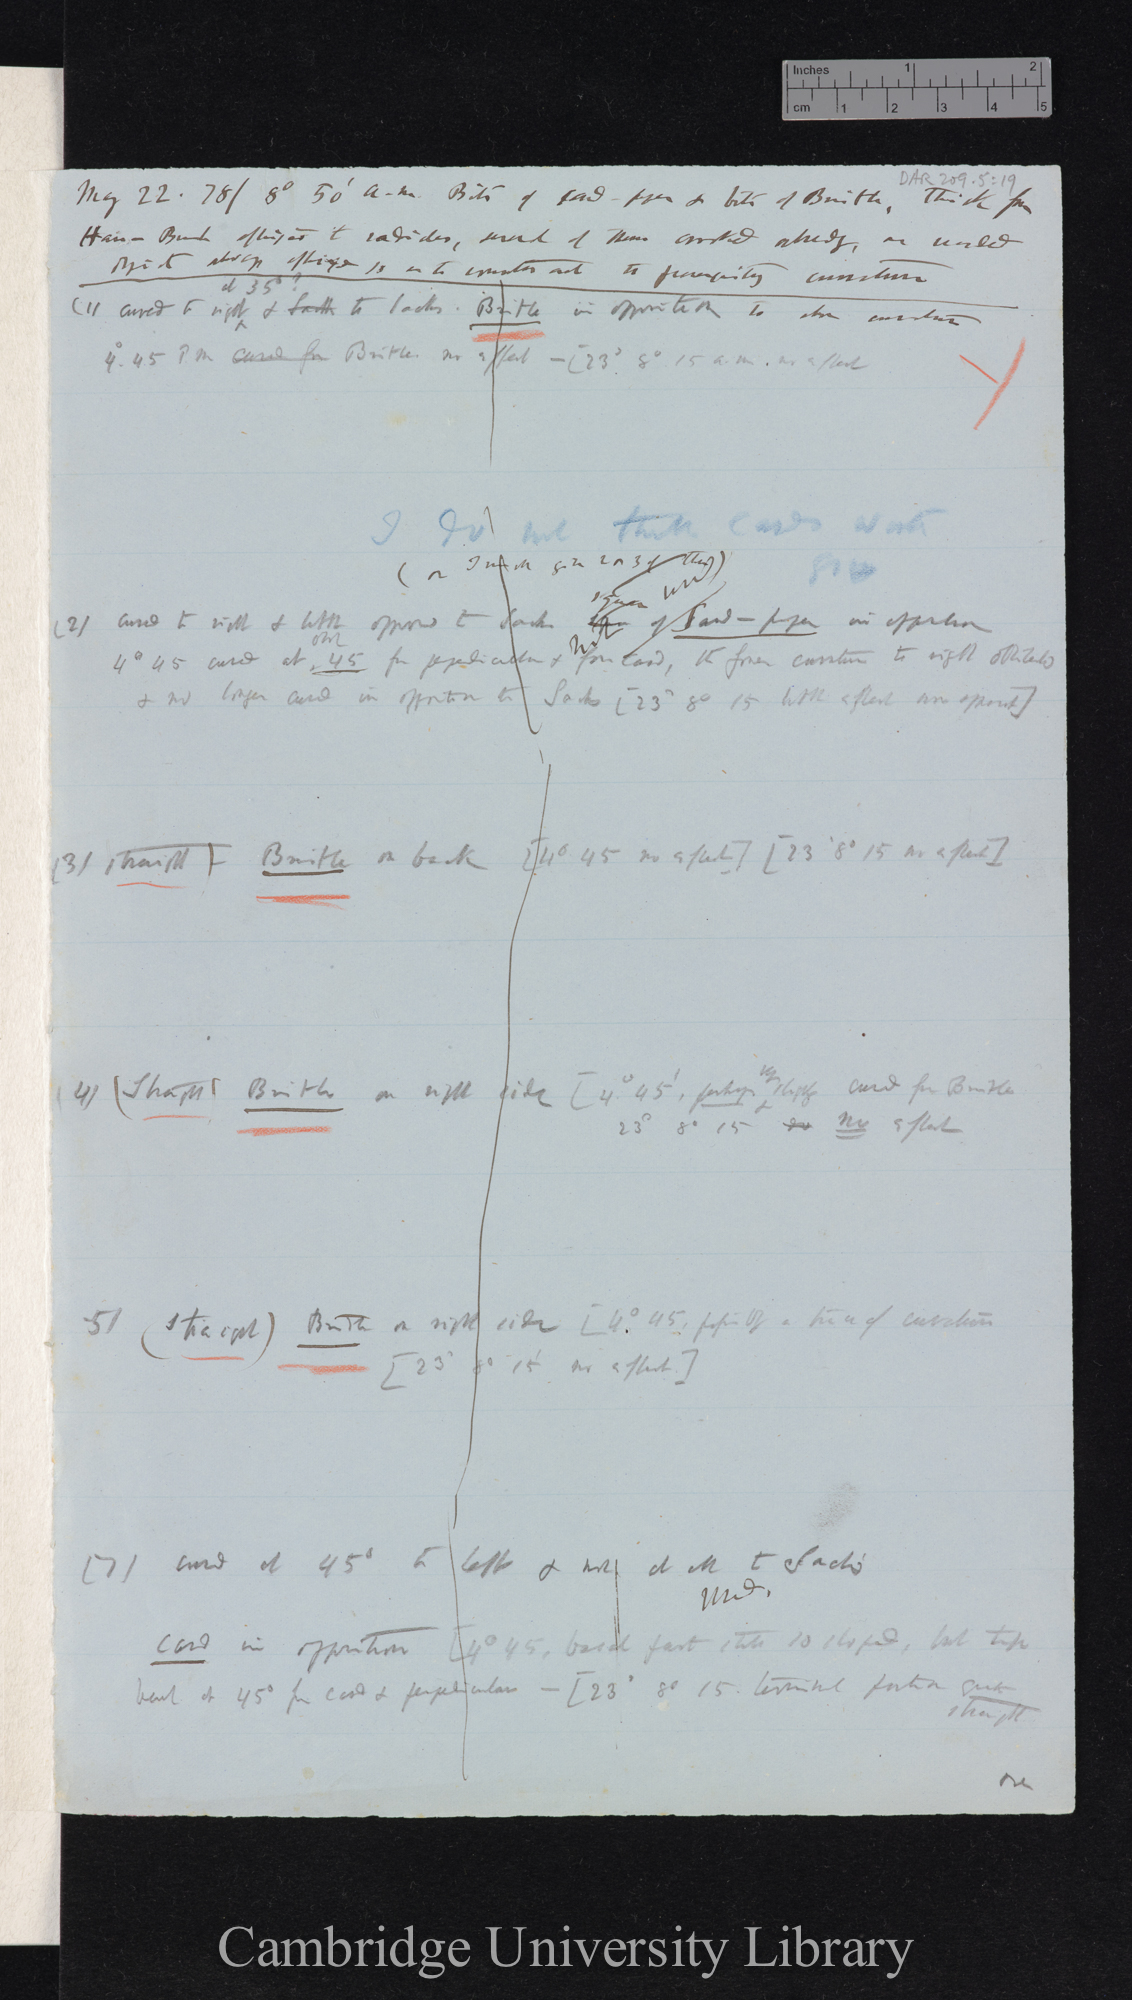 Inches 1 2
cm 1 2 3 4 5
DAR 209.5:19
May 22. 78/ 8° 50' a.m. Bits of card-paper & bits of Bristle, thick from
Hair-Brush affixed to radicles, several of them crooked already, or
so as to counteract the curvature
at 35°?
(1) curved to right & to Sachs. Bristle in opposition to above curvature
4°. 45 P.m Bristle. no effect — [23° 8° 15 a.m. no effect
I do not think cards worth
give
(or I might give 2 or 3 of them)
Used
(2) curved to right & little opposed to Sachs of Card-paper in opposition
4° 45 curved at 45 from perpendicular & from card, the former curvature to right obliterated
& no longer curved in opposition to Sachs [23° 8° 15 little effect now apparent]
(3) straight Bristle on back [4° 45 no effect] [23° 8° 15 no effect]
4) (Straight) Bristle on right side [4° 45', perhaps very slightly curved from Bristle
23° 8° 15 no effect
5) (Straight) Bristle on right side [4° 45, possibly a trace of curvature
[23° 8° 15' no effect.]
(7) curved at 45° to left & not at all to Sachs
Used.
Card in opposition [4° 45, basal part still so sloped, but tip
bent at 45° from card & perpendicular — [23° 8° 15. terminal portion quite
straight
over
Cambridge University Library